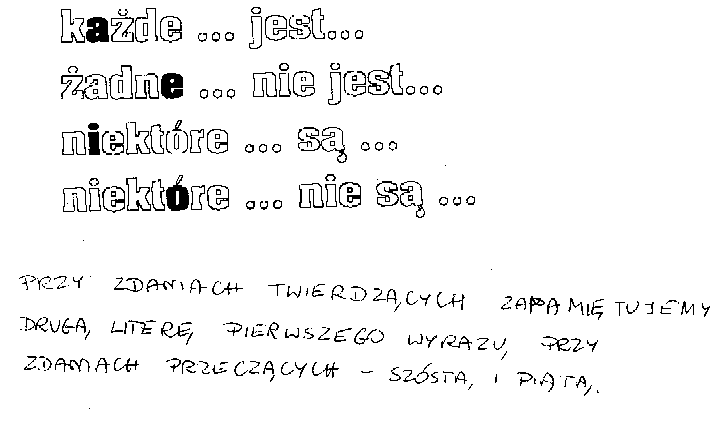 każde ... jest...
żadne ... nie jest...
niektóre ... są ...
niektóre ... nie są ...
PRZY ZDANIACH TWIERDZĄCYCH ZAPAMIĘTUJEMY
DRUGĄ LITERĘ PIERWSZEGO WYRAZU, PRZY
ZDANIACH PRZECZĄCYCH - SZÓSTĄ I PIĄTĄ.